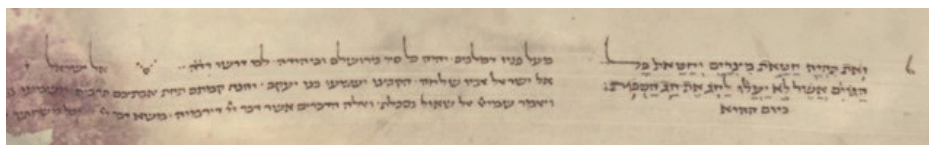 זֹאת תִּהְיֶה חַטַּאת מִצְרָיִם וְחַטַּאת כָּל
הַגּוֹיִם אֲשֶׁר לֹא יַעֲלוּ לָחֹג אֶת חַג הַסֻּכּוֹת׃
ביום ההוא
מעל פניו דמלכים · יהודה כל בירושלם וביהודה · דרשו אל ישראל
אל ישראל אביו שלחה · הקבצו ושמעו בני יעקב · והנה קמתם תחת אבתיכם תרבות
ויאמר שמואל אל שאול נסכלת · ואלה הדברים אשר דבר דירמיה · משא דבר על ישראל